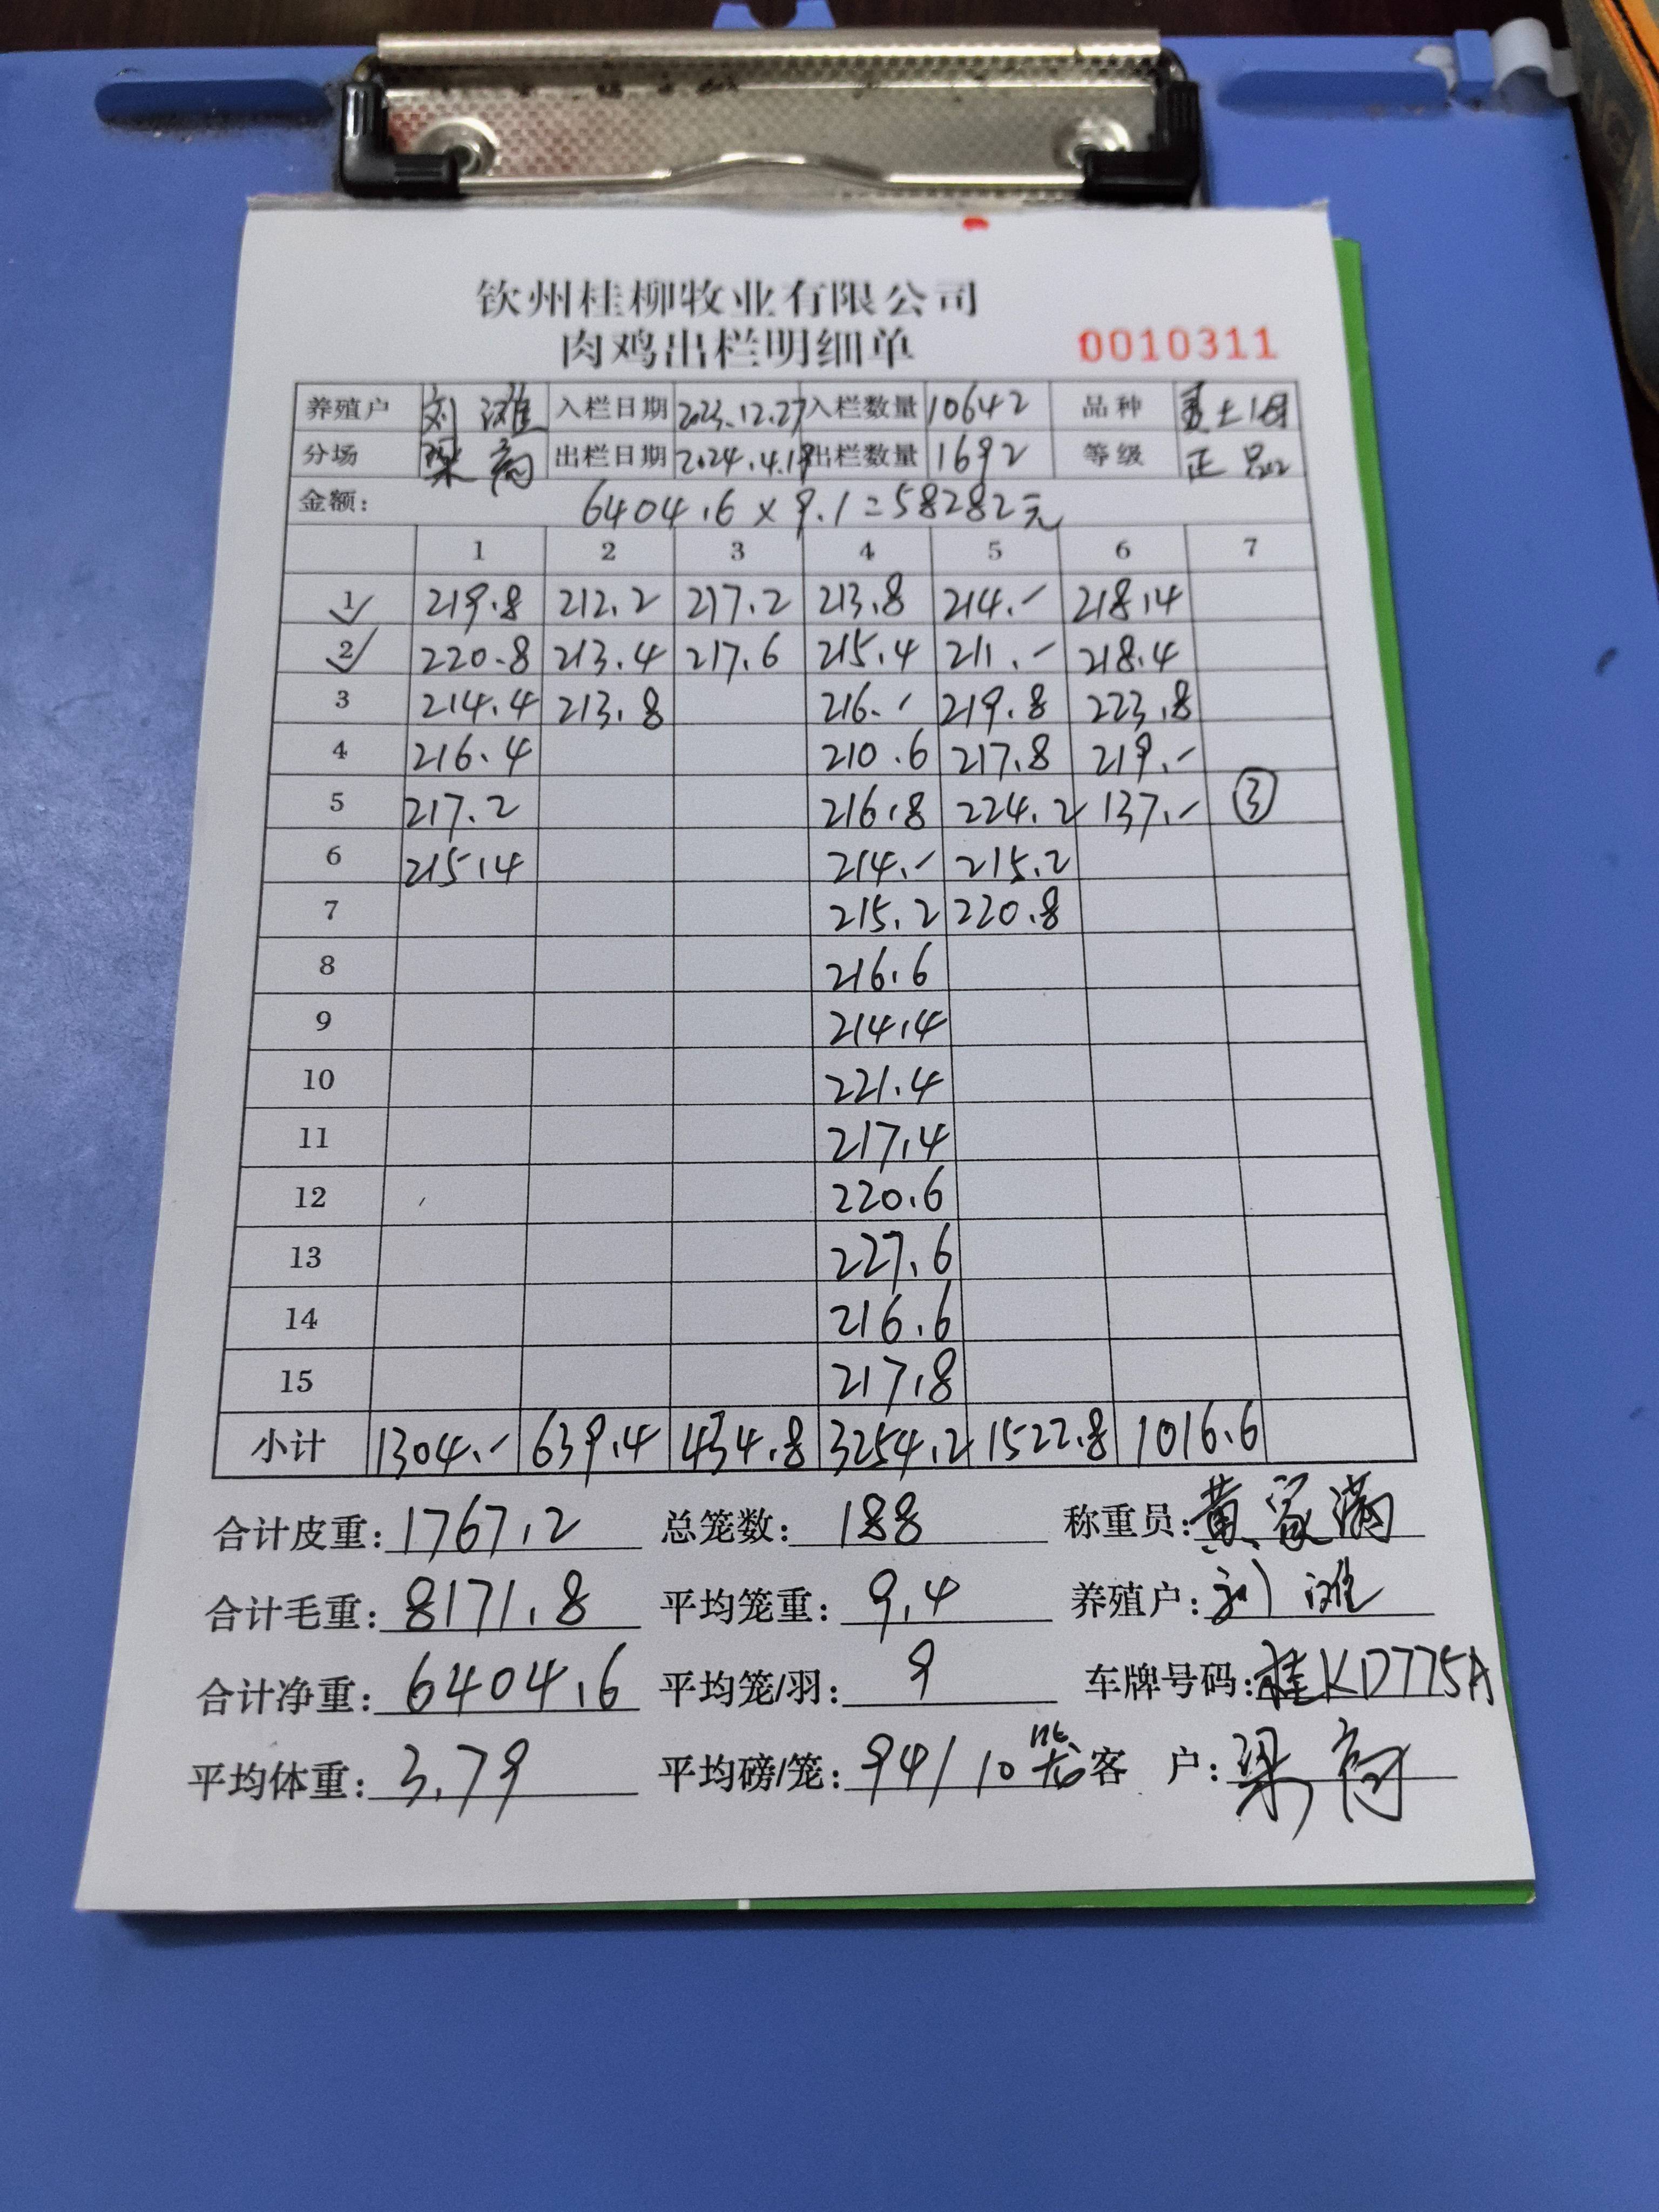 钦州桂柳牧业有限公司
肉鸡出栏明细单 0010311
养殖户 刘 滩 入栏日期 2023.12.27 入栏数量 10642 品种
分场 梁 高 出栏日期 2024.4.19 出栏数量 1692 等级 正品
金额: 6404.6×9.1=58282元
1 2 3 4 5 6 7
1 219.8 212.2 217.2 213.8 214.- 218.4
2 220.8 213.4 217.6 215.4 211.- 218.4
3 214.4 213.8 216.- 219.8 223.8
4 216.4 210.6 217.8 219.-
5 217.2 216.8 224.2 137.- ③
6 215.4 214.- 215.2
7 215.2 220.8
8 216.6
9 214.4
10 221.4
11 217.4
12 220.6
13 227.6
14 216.6
15 217.8
小计 1304.- 639.4 434.8 3254.2 1522.8 1016.6
合计皮重: 1767.2 总笼数: 188 称重员: 黄家满
合计毛重: 8171.8 平均笼重: 9.4 养殖户: 刘 滩
合计净重: 6404.6 平均笼/羽: 9 车牌号码: 桂KD775A
平均体重: 3.79 平均磅/笼: 94/10 客 户: 梁 高